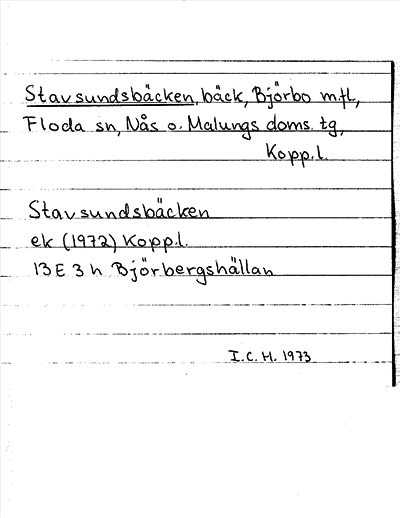 Stavsundsbäcken, bäck, Björbo m.fl.,
Floda sn, Nås o. Malungs doms. tg,
Kopp.l.
Stavsundsbäcken
ek (1972) Kopp.l.
13E 3h Björbergshällan
I.C.H. 1973